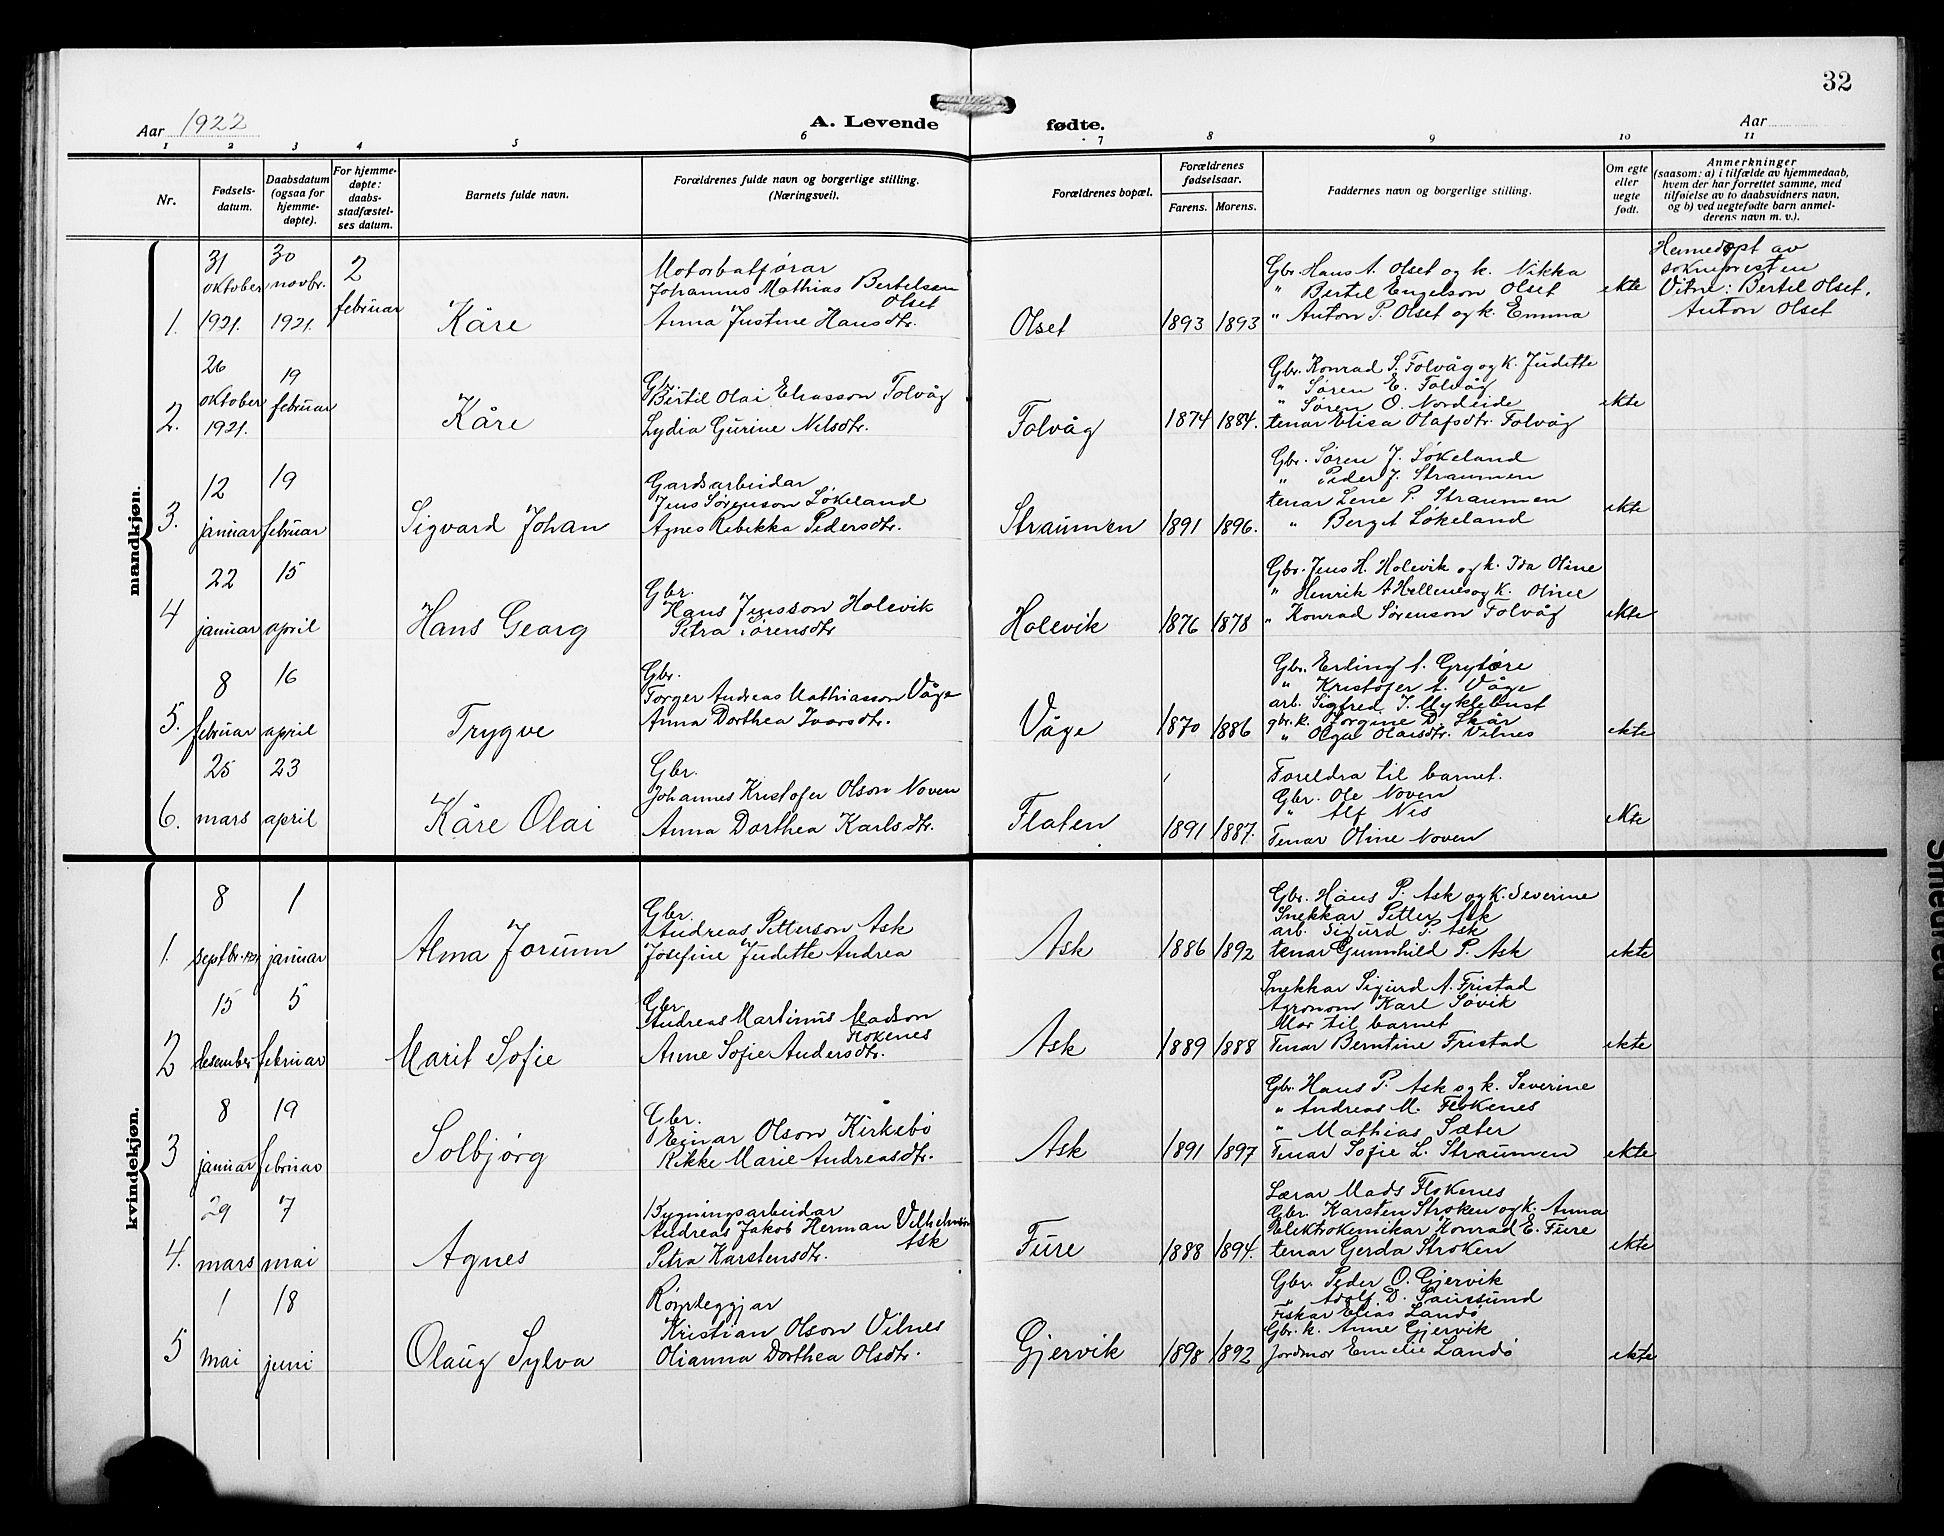 32
Aar 1922
A. Levende fødte.
Aar
1 2 3 4 5 6 7 8 9 10 11
Nr.
Fødsels-
datum.
Daabsdatum
(ogsaa for
hjemme-
døpte).
For hjemme-
døpte:
daabs-
stadfæstel-
ses datum.
Barnets fulde navn.
Forældrenes fulde navn og borgerlige stilling.
(Næringsvei).
Forældrenes bopæl.
Forældrenes
fødselsaar.
Farens. Morens.
Faddernes navn og borgerlige stilling.
Om egte
eller
uegte
født.
Anmerkninger
(saasom: a) i tilfælde av hjemmedaab,
hvem der har forrettet samme, med
tilføielse av to daabsvidners navn,
og b) ved uegtefødte barn anmel-
derens navn m. v.).
mandkjøn.
1.
31
oktober
1921.
30
novbr.
1921.
2
februar
Kåre
Motorbatførar
Johannes Mathias Bertelsen
Olset
Anna Justine Hansdtr.
Olset
1893 1893
Gbr. Hans A. Olset og k. Rikka
" Bertel Engelson Olset
" Anton P. Olset og k. Emma
ekte
Heimedøpt av
soknepresten
Vitne: Bertil Olset,
Anton Olset
2.
26
oktober
1921.
19
februar
Kåre
Gbr.
Bertil Olai Eliasson Tolvåg
Lydia Gurine Nilsdtr.
Tolvåg
1874 1884.
Gbr. Konrad S. Folvåg og k. Judette
" Søren E. Folvåg
" Søren O. Nordeide
tenar Elisa Olafsdtr. Folvåg
ekte
3.
12
januar
19
februar
Sigvard Johan
Gardsarbeidar
Jens Sørenson Løkeland
Agnes Rebikka Pedersdtr.
Straumen
1891 1896.
Gbr. Søren J. Løkeland
" Peder J. Straumen
tenar Lene P. Straumen
" Berget Løkeland
ekte
4
22
januar
15
april
Hans Georg
Gbr.
Hans Jensson Holevik
Petra Sørensdtr.
Holevik
1876 1878
Gbr. Jens H. Holevik og k. Ida Oline
" Henrik A Hellenes og k. Oline
" Konrad Sørenson Folvåg
ekte
5.
8
februar
16
april
Trygve
Gbr.
Torger Andreas Mathiasson Våge
Anna Dorthea Ivarsdtr.
Våge
1870 1886
Gbr. Erling A. Grytøre
" Kristofer A. Våge
arb. Sigfred J. Myklebust
gbr.k. Jorgine D. Skår
" Olga Olaisdtr. Vilnes
ekte
6.
25
mars
23
april
Kåre Olai
Gbr.
Johannes Kristofer Olson Noven
Anna Dorthea Karlsdtr.
Flaten
1891 1887.
Foreldra til barnet.
Gbr. Ole Noven
" Alf Nes
Tenar Oline Noven
ekte
kvindekjøn.
1.
8
septbr. 1921
1
januar
Alma Jorunn
Gbr.
Andreas Petterson Ask
Josefine Judette Andrea
Ask
1886 1892
Gbr. Hans P. Ask og k. Severine
Snekkar Petter Ask
arb. Sigurd P. Ask
tenar Gunnhild P. Ask
ekte
2
15
desember
5
februar
Marit Sofie
Gbr.
Andreas Martinus Madson
Flokenes
Anne Sofie Andersdtr.
Ask
1889 1888
Snekkar Sigurd A. Fristad
Agronom Karl Søvik
Mor til barnet
Tenar Berntine Fristad
ekte
3
8
januar
19
februar
Solbjørg
Gbr.
Einar Olson Kirkebø
Rikke Marie Andreasdtr.
Ask
1891 1897
Gbr. Hans P. Ask og k. Severine
" Andreas M. Flokenes
" Mathias Sæter
Tenar Sofie L. Straumen
ekte
4.
29
mars
7
mai
Agnes
Bygningsarbeidar
Andreas Jakob Herman Vilhelmsen
Ask
Petra Karstensdtr.
Fure
1888 1894.
Lærar Mads Flokenes
Gbr. Karsten Stroken og k. Anna
Elektrokemikar Konrad E. Fure
tenar Gerda Stroken
ekte
5
1
mai
18
juni
Olaug Sylva
Rørleggjar
Kristian Olson Vilnes
Olianna Dorthea Olsdtr.
Gjervik
1898 1892
Gbr. Peder O. Gjervik
" Adolf D. Sauesund
Fiskar Elias Landø
Gbr. k. Anne Gjervik
Jordmor Emelie Landø
ekte